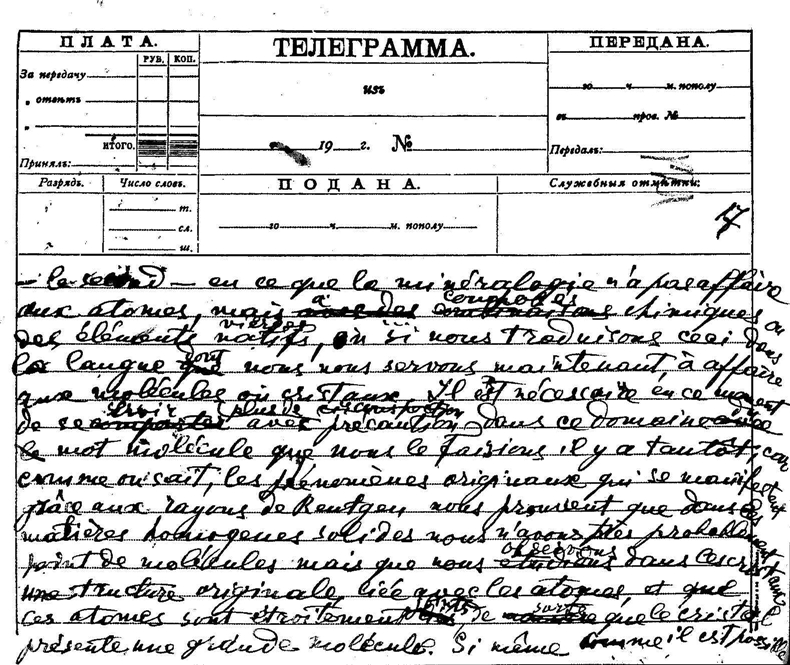 ПЛАТА.
РУБ. КОП.
За передачу
„ отвѣтъ
„
ИТОГО.
Принялъ:
ТЕЛЕГРАММА.
изъ
19 г. №
ПЕРЕДАНА.
го ч. м. пополу
въ пров. №
Передалъ:
Разрядъ. Число словъ.
т.
сл.
ш.
ПОДАНА.
го ч. м. пополу
Служебныя отмѣтки:
17
– le second – en ce que la minéralogie n'a pas affaire
aux atomes, mais à composés chimiques ou
des éléments natifs, si nous traduisons ceci dans
la langue dont nous nous servons maintenant, à affaire
aux molécules ou cristaux. Il est nécessaire en ce moment
de se servir plus de circonspection avec précaution dans ce domaine
le mot molécule que nous le faisions il y a tantôt, car
comme on sait, les phénomènes originaux qui se manifestent
grâce aux rayons de Rentgen nous prouvent que dans les
matières homogenes solides nous n'avons très probablement
point de molécules mais que nous observons dans ces cristaux
une structure originale, liée avec les atomes, et que
ces atomes sont étroitement liés de sorte que le cristal
présente une grande molécule. Si même il est possible